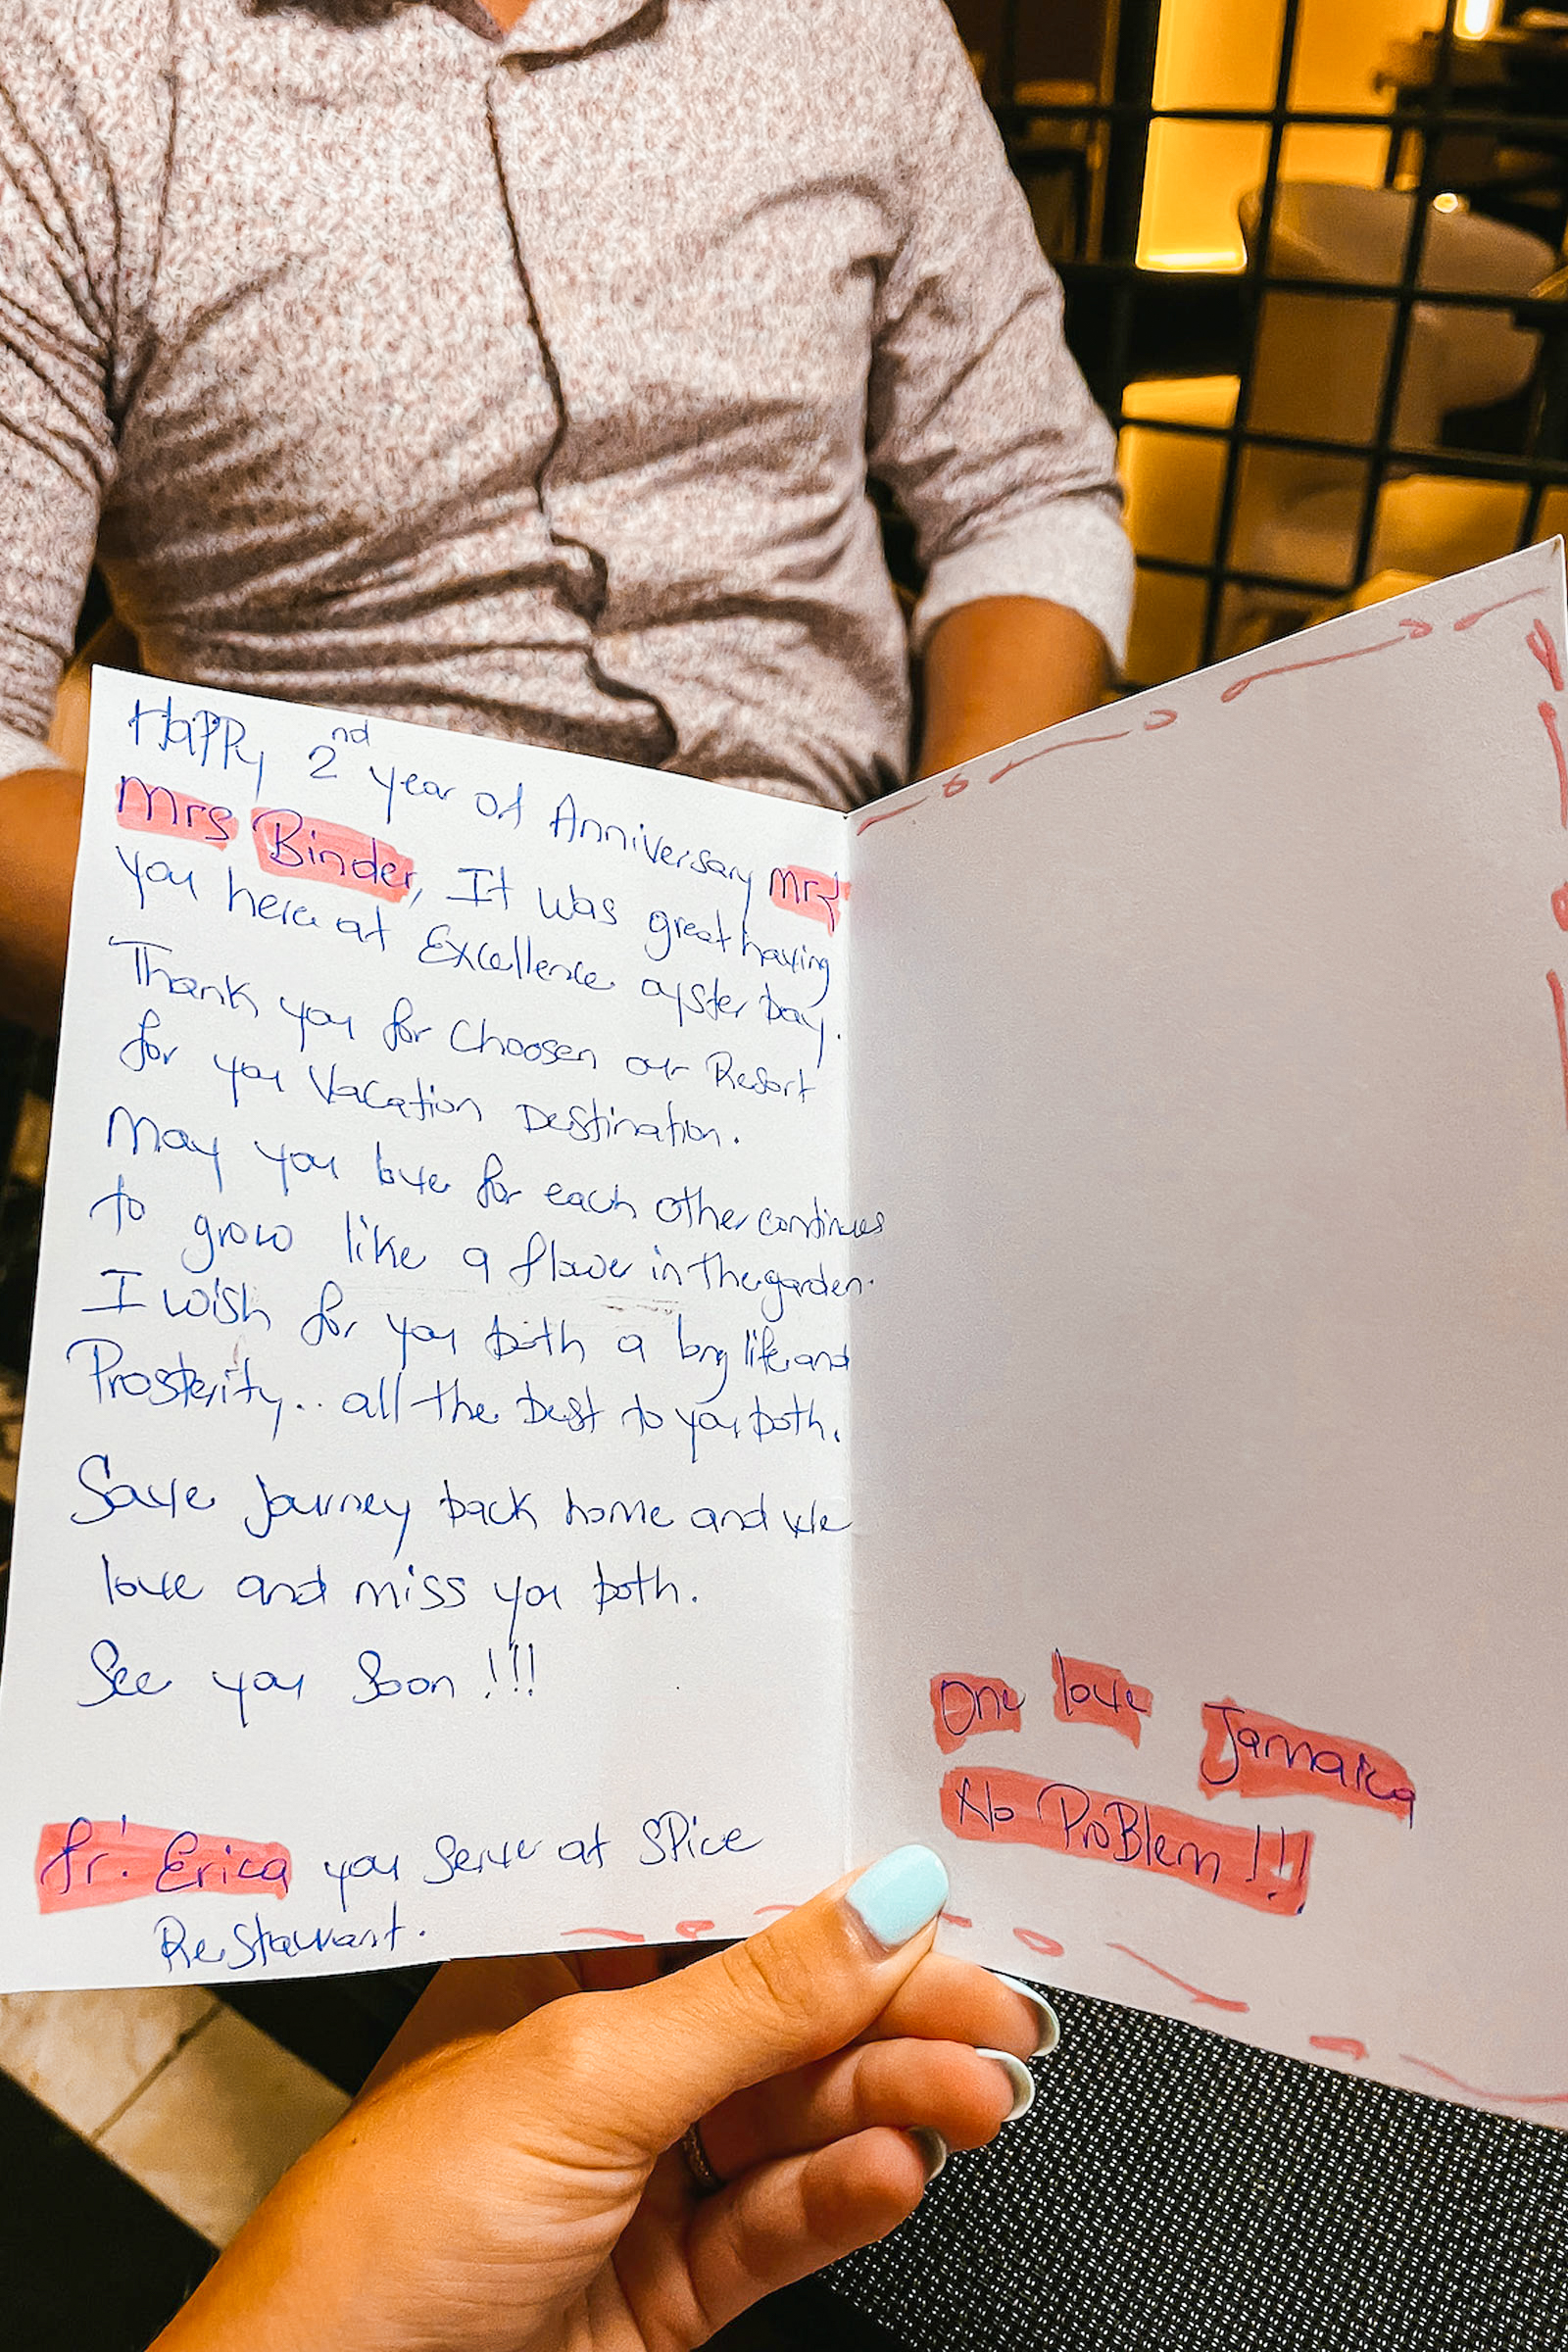 Happy 2nd year of Anniversary Mr &
Mrs Binder, It was great having
you here at Excellence oyster bay.
Thank you for Choosen our Resort
for you Vacation Destination.
May you love for each other continues
to grow like a flower in the garden.
I wish for you both a long life and
Prosterity.. all the best to you both.
Save Journey back home and We
love and miss you both.
See you Soon !!!
fr: Erica you Serve at SPice
Restaurant.
One love Jamaica
No ProBlem !!!